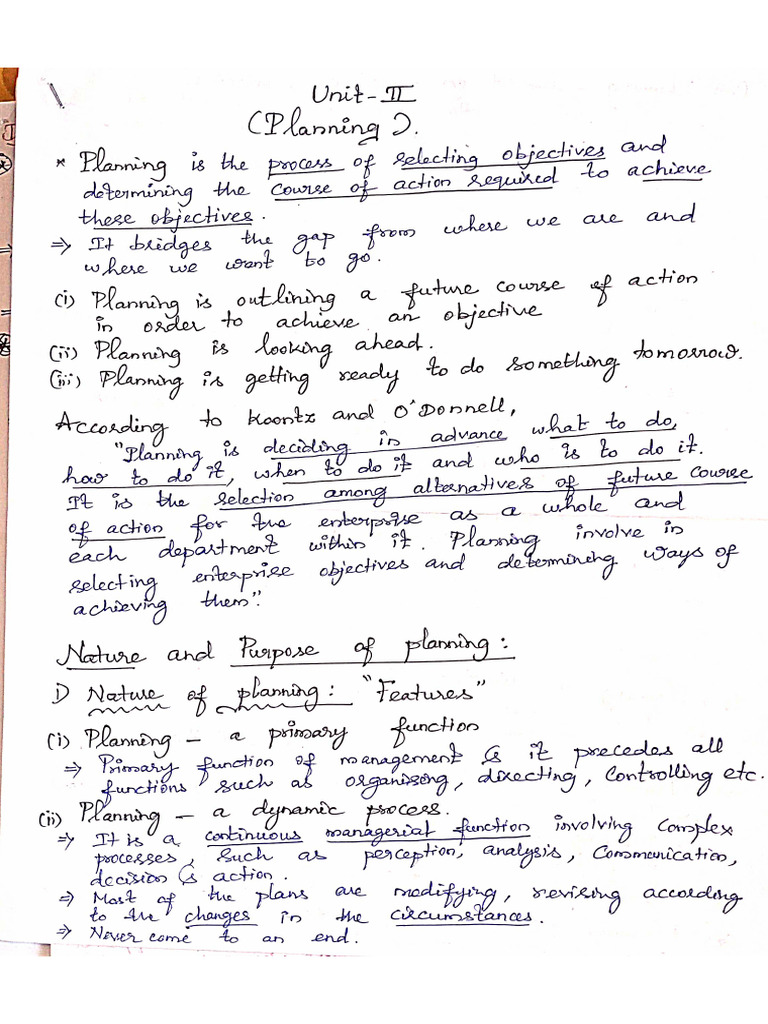 Unit-II
(Planning).
* Planning is the process of selecting objectives and
determining the course of action required to achieve
these objectives.
⇒ It bridges the gap from where we are and
where we want to go.
(i) Planning is outlining a future course of action
in order to achieve an objective
(ii) Planning is looking ahead.
(iii) Planning is getting ready to do something tomorrow.
According to Koontz and O'Donnell,
"Planning is deciding in advance what to do,
how to do it, when to do it and who is to do it.
It is the selection among alternatives of future course
of action for the enterprise as a whole and
each department within it. Planning involve in
selecting enterprise objectives and determining ways of
achieving them".
Nature and Purpose of planning:
I) Nature of planning: "Features"
(i) Planning - a primary function
⇒ Primary function of management & it precedes all
functions such as organising, directing, controlling etc.
(ii) Planning - a dynamic process.
⇒ It is a continuous managerial function involving complex
processes, such as perception, analysis, communication,
decision & action.
⇒ Most of the plans are modifying, revising according
to the changes in the circumstances.
⇒ Never come to an end.